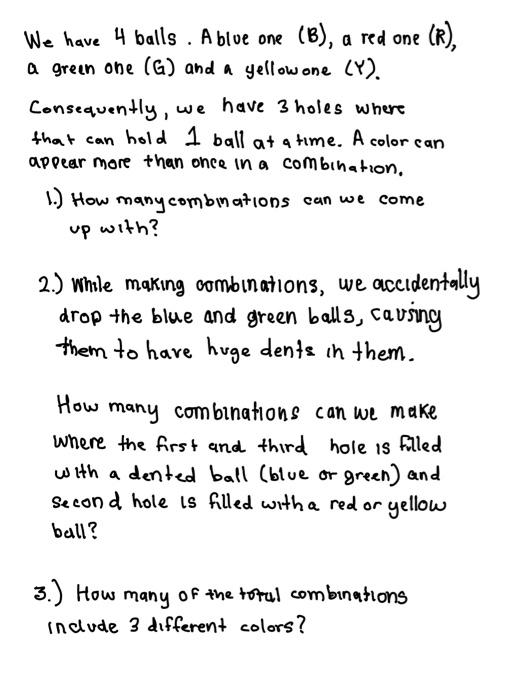 We have 4 balls. A blue one (B), a red one (R),
a green one (G) and a yellow one (Y).
Consequently, we have 3 holes where
that can hold 1 ball at a time. A color can
appear more than once in a combination.
1.) How many combinations can we come
up with?
2.) While making combinations, we accidentally
drop the blue and green balls, causing
them to have huge dents in them.
How many combinations can we make
where the first and third hole is filled
with a dented ball (blue or green) and
second hole is filled with a red or yellow
ball?
3.) How many of the total combinations
include 3 different colors?